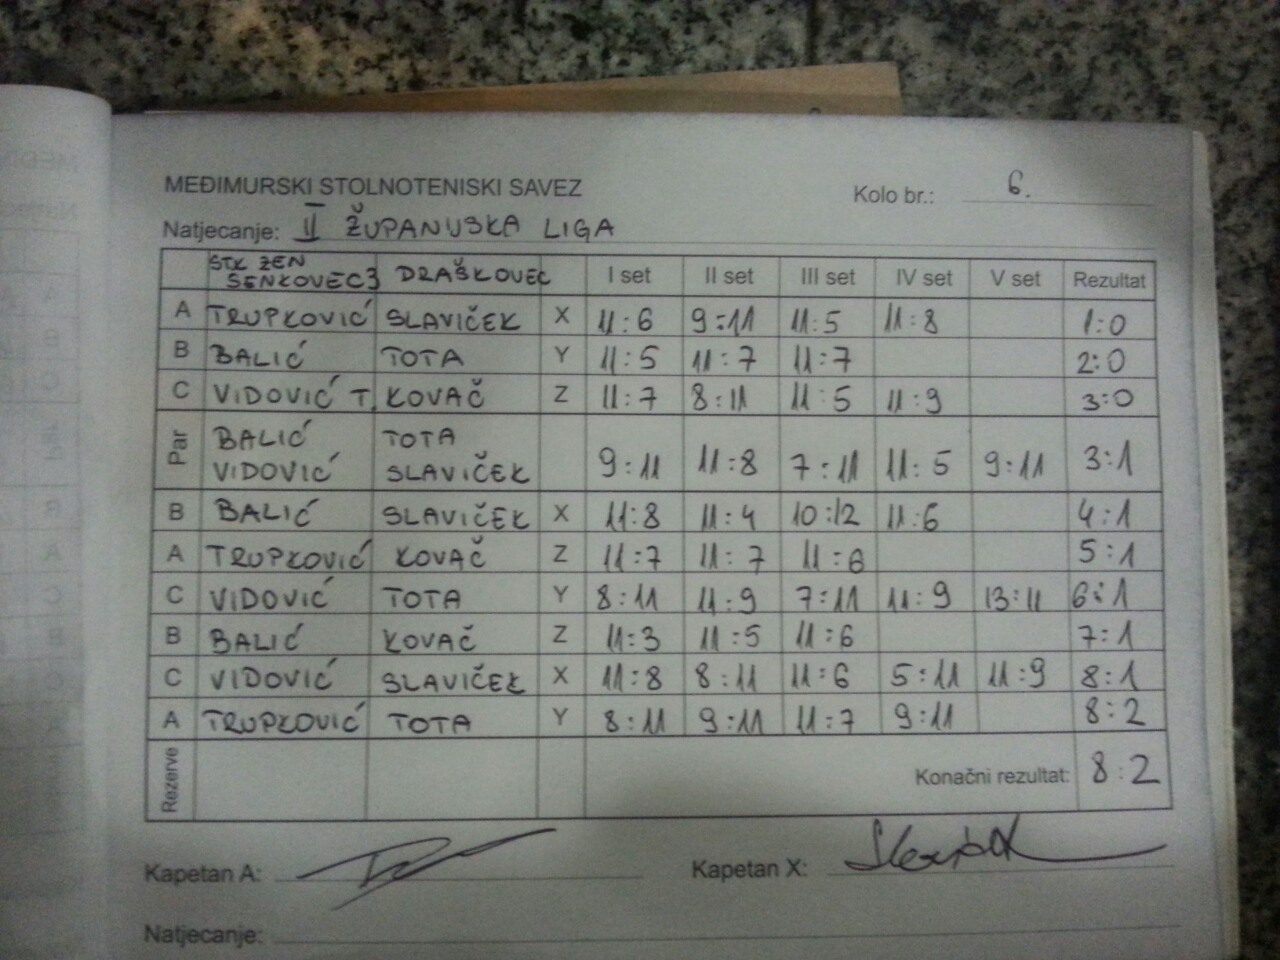 MEĐIMURSKI STOLNOTENISKI SAVEZ
Kolo br.: 6.
Natjecanje: II ŽUPANIJSKA LIGA
STK ZEN ŠENKOVEC 3 DRAŠKOVEC I set II set III set IV set V set Rezultat
A TRUPKOVIĆ SLAVIČEK X 11:6 9:11 11:5 11:8 1:0
B BALIĆ TOTA Y 11:5 11:7 11:7 2:0
C VIDOVIĆ T. KOVAČ Z 11:7 8:11 11:5 11:9 3:0
Par BALIĆ VIDOVIĆ TOTA SLAVIČEK 9:11 11:8 7:11 11:5 9:11 3:1
B BALIĆ SLAVIČEK X 11:8 11:4 10:12 11:6 4:1
A TRUPKOVIĆ KOVAČ Z 11:7 11:7 11:6 5:1
C VIDOVIĆ TOTA Y 8:11 11:9 7:11 11:9 13:11 6:1
B BALIĆ KOVAČ Z 11:3 11:5 11:6 7:1
C VIDOVIĆ SLAVIČEK X 11:8 8:11 11:6 5:11 11:9 8:1
A TRUPKOVIĆ TOTA Y 8:11 9:11 11:7 9:11 8:2
Rezerve Konačni rezultat: 8:2
Kapetan A: Kapetan X:
Natjecanje: